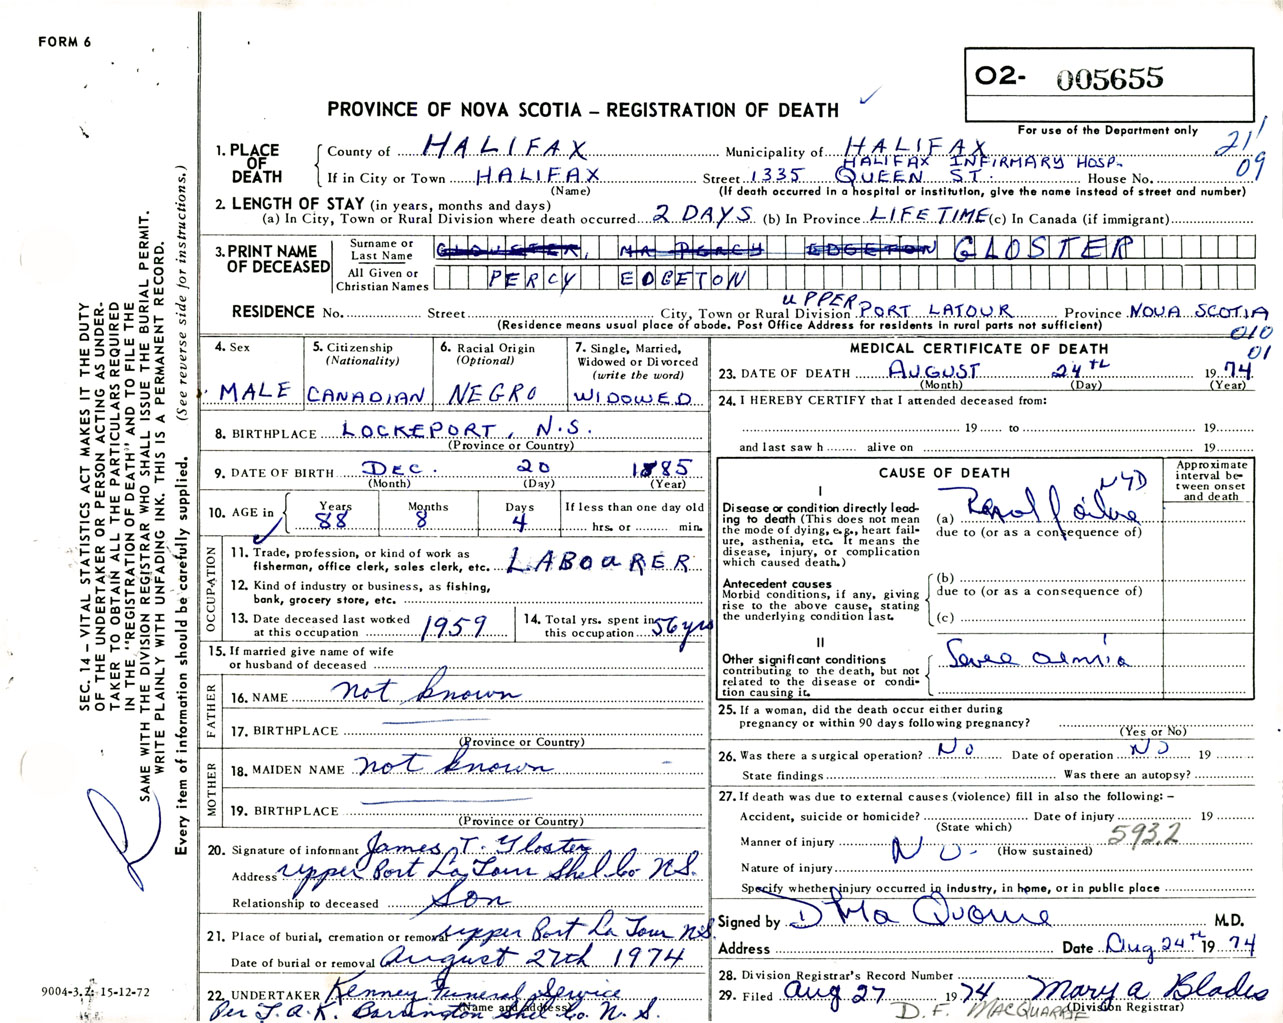 FORM 6
O2- 005655
PROVINCE OF NOVA SCOTIA – REGISTRATION OF DEATH
For use of the Department only
21
09
1. PLACE OF DEATH
County of HALIFAX Municipality of HALIFAX
HALIFAX INFIRMARY HOSP.
If in City or Town HALIFAX Street 1335 QUEEN ST. House No.
(Name) (If death occurred in a hospital or institution, give the name instead of street and number)
2. LENGTH OF STAY (in years, months and days)
(a) In City, Town or Rural Division where death occurred 2 DAYS (b) In Province LIFETIME (c) In Canada (if immigrant)
3. PRINT NAME OF DECEASED
Surname or Last Name MR PERCY EDGETON GLOSTER
All Given or Christian Names PERCY EDGETON
RESIDENCE No. Street City, Town or Rural Division UPPER PORT LATOUR Province NOVA SCOTIA
(Residence means usual place of abode. Post Office Address for residents in rural parts not sufficient)
010
01
4. Sex MALE
5. Citizenship (Nationality) CANADIAN
6. Racial Origin (Optional) NEGRO
7. Single, Married, Widowed or Divorced (write the word) WIDOWED
8. BIRTHPLACE LOCKEPORT, N.S.
(Province or Country)
9. DATE OF BIRTH DEC. 20 1885
(Month) (Day) (Year)
10. AGE in Years 88 Months 8 Days 4 If less than one day old hrs. or min.
OCCUPATION
11. Trade, profession, or kind of work as fisherman, office clerk, sales clerk, etc. LABOARER
12. Kind of industry or business, as fishing, bank, grocery store, etc.
13. Date deceased last worked at this occupation 1959
14. Total yrs. spent in this occupation 56 yrs
15. If married give name of wife or husband of deceased
FATHER
16. NAME not known
17. BIRTHPLACE
(Province or Country)
MOTHER
18. MAIDEN NAME not known
19. BIRTHPLACE
(Province or Country)
20. Signature of informant James T. Gloster
Address Upper Port La Tour Shel. Co N.S.
Relationship to deceased Son
21. Place of burial, cremation or removal Upper Port La Tour N.S.
Date of burial or removal August 27th 1974
22. UNDERTAKER Kenney Funeral Service
(Name and address)
Per T.A.K. Barrington Shel Co. N.S.
MEDICAL CERTIFICATE OF DEATH
23. DATE OF DEATH AUGUST 24th 1974
(Month) (Day) (Year)
24. I HEREBY CERTIFY that I attended deceased from:
19 to 19
and last saw h alive on 19
CAUSE OF DEATH
Approximate interval between onset and death
I
Disease or condition directly leading to death (This does not mean the mode of dying, e.g., heart failure, asthenia, etc. It means the disease, injury, or complication which caused death.)
(a) Renal failure NYD
due to (or as a consequence of)
Antecedent causes
Morbid conditions, if any, giving rise to the above cause, stating the underlying condition last.
(b)
due to (or as a consequence of)
(c)
II
Other significant conditions contributing to the death, but not related to the disease or condition causing it.
Severe anemia
25. If a woman, did the death occur either during pregnancy or within 90 days following pregnancy?
(Yes or No)
26. Was there a surgical operation? No Date of operation No 19
State findings Was there an autopsy?
27. If death was due to external causes (violence) fill in also the following: –
Accident, suicide or homicide? Date of injury 19
(State which)
593.2
Manner of injury NO.
(How sustained)
Nature of injury
Specify whether injury occurred in industry, in home, or in public place
Signed by M.D.
Address Date Aug. 24th 1974
28. Division Registrar's Record Number
29. Filed Aug 27 1974 Mary A Blades
(Division Registrar)
D.F. MACQUARRIE
SEC. 14 – VITAL STATISTICS ACT MAKES IT THE DUTY
OF THE UNDERTAKER OR PERSON ACTING AS UNDER-
TAKER TO OBTAIN ALL THE PARTICULARS REQUIRED
IN THE "REGISTRATION OF DEATH" AND TO FILE THE
SAME WITH THE DIVISION REGISTRAR WHO SHALL ISSUE THE BURIAL PERMIT.
WRITE PLAINLY WITH UNFADING INK. THIS IS A PERMANENT RECORD.
Every item of information should be carefully supplied. (See reverse side for instructions.)
9004-3.2: 15-12-72